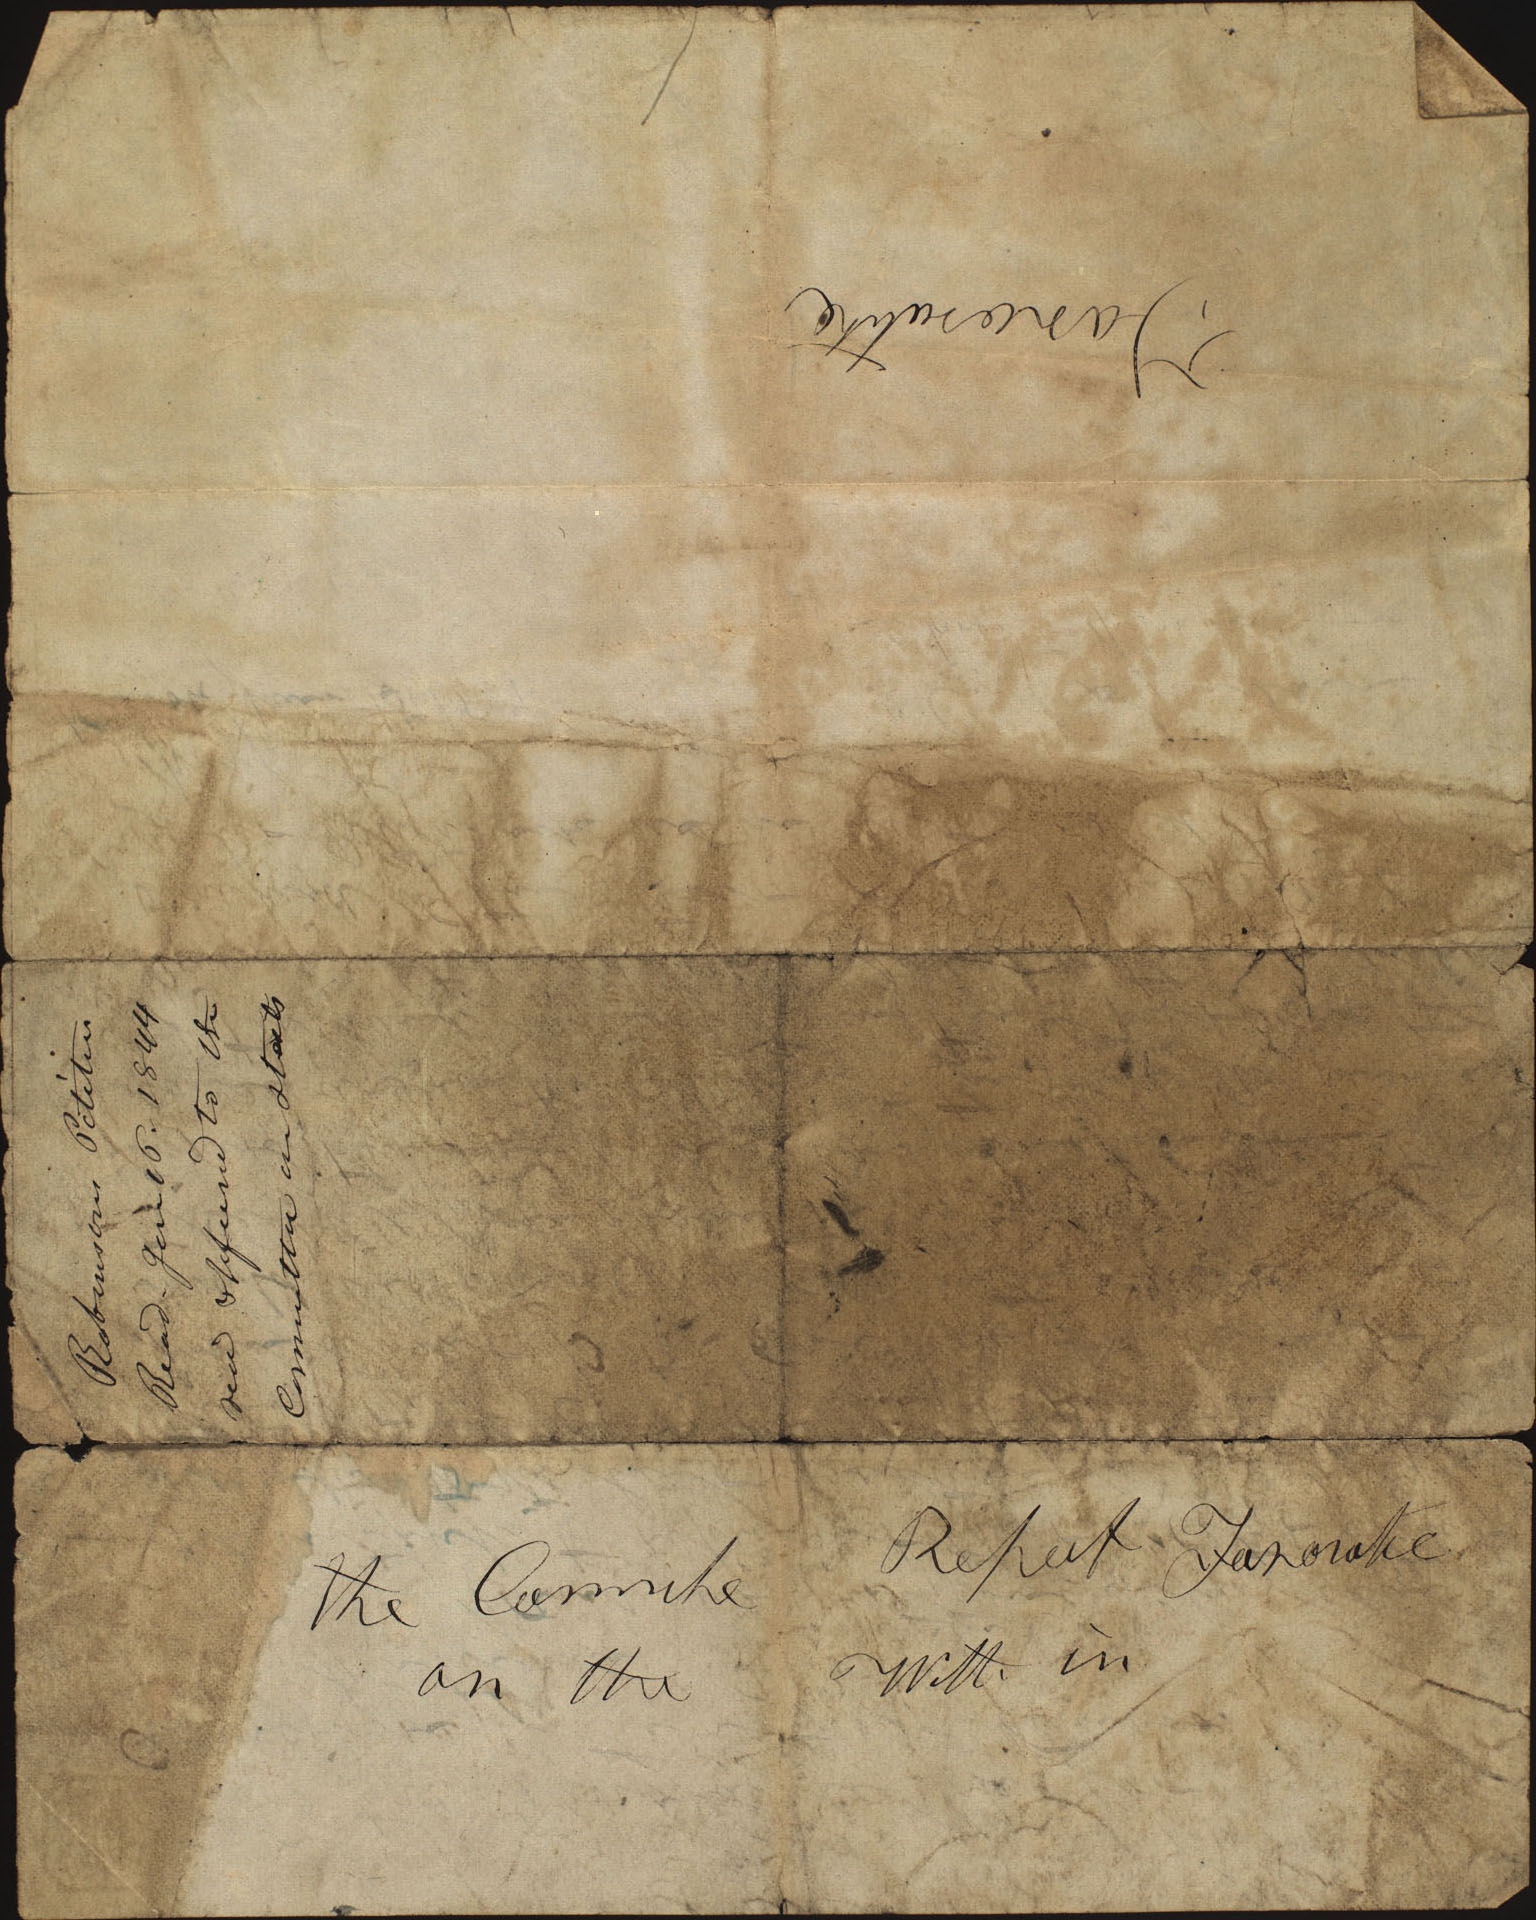 Favorable
Robinsons Petition
Read
1844
and refered to the
Committee on
the Committe
on the
Report Favorable
With in